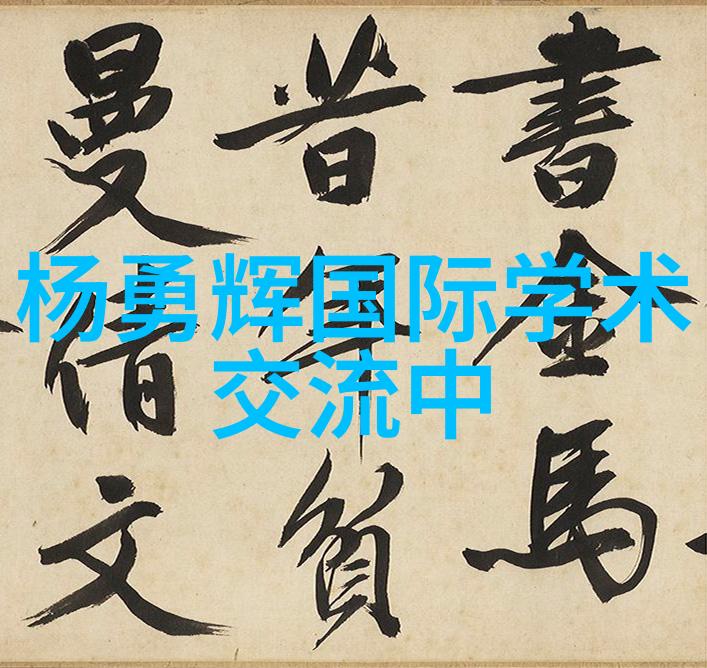 杨勇辉国际学术
交流中
書金馬
昔年負
曼倩文